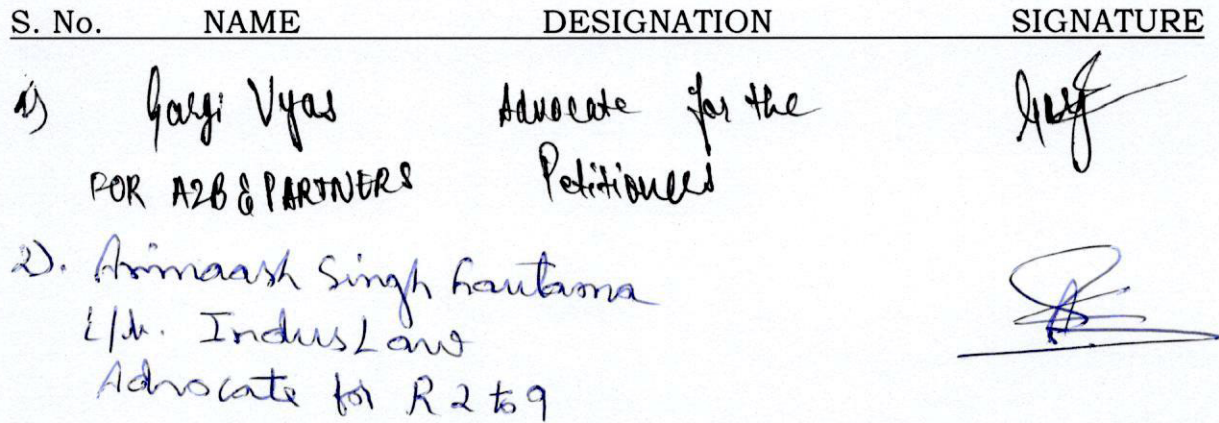 S. No. NAME DESIGNATION SIGNATURE
1) Gargi Vyas Advocate for the
FOR A2B & PARTNERS Petitioners
2). Avinaash Singh Gautama
i/b. IndusLaw
Advocate for R 2 to 9